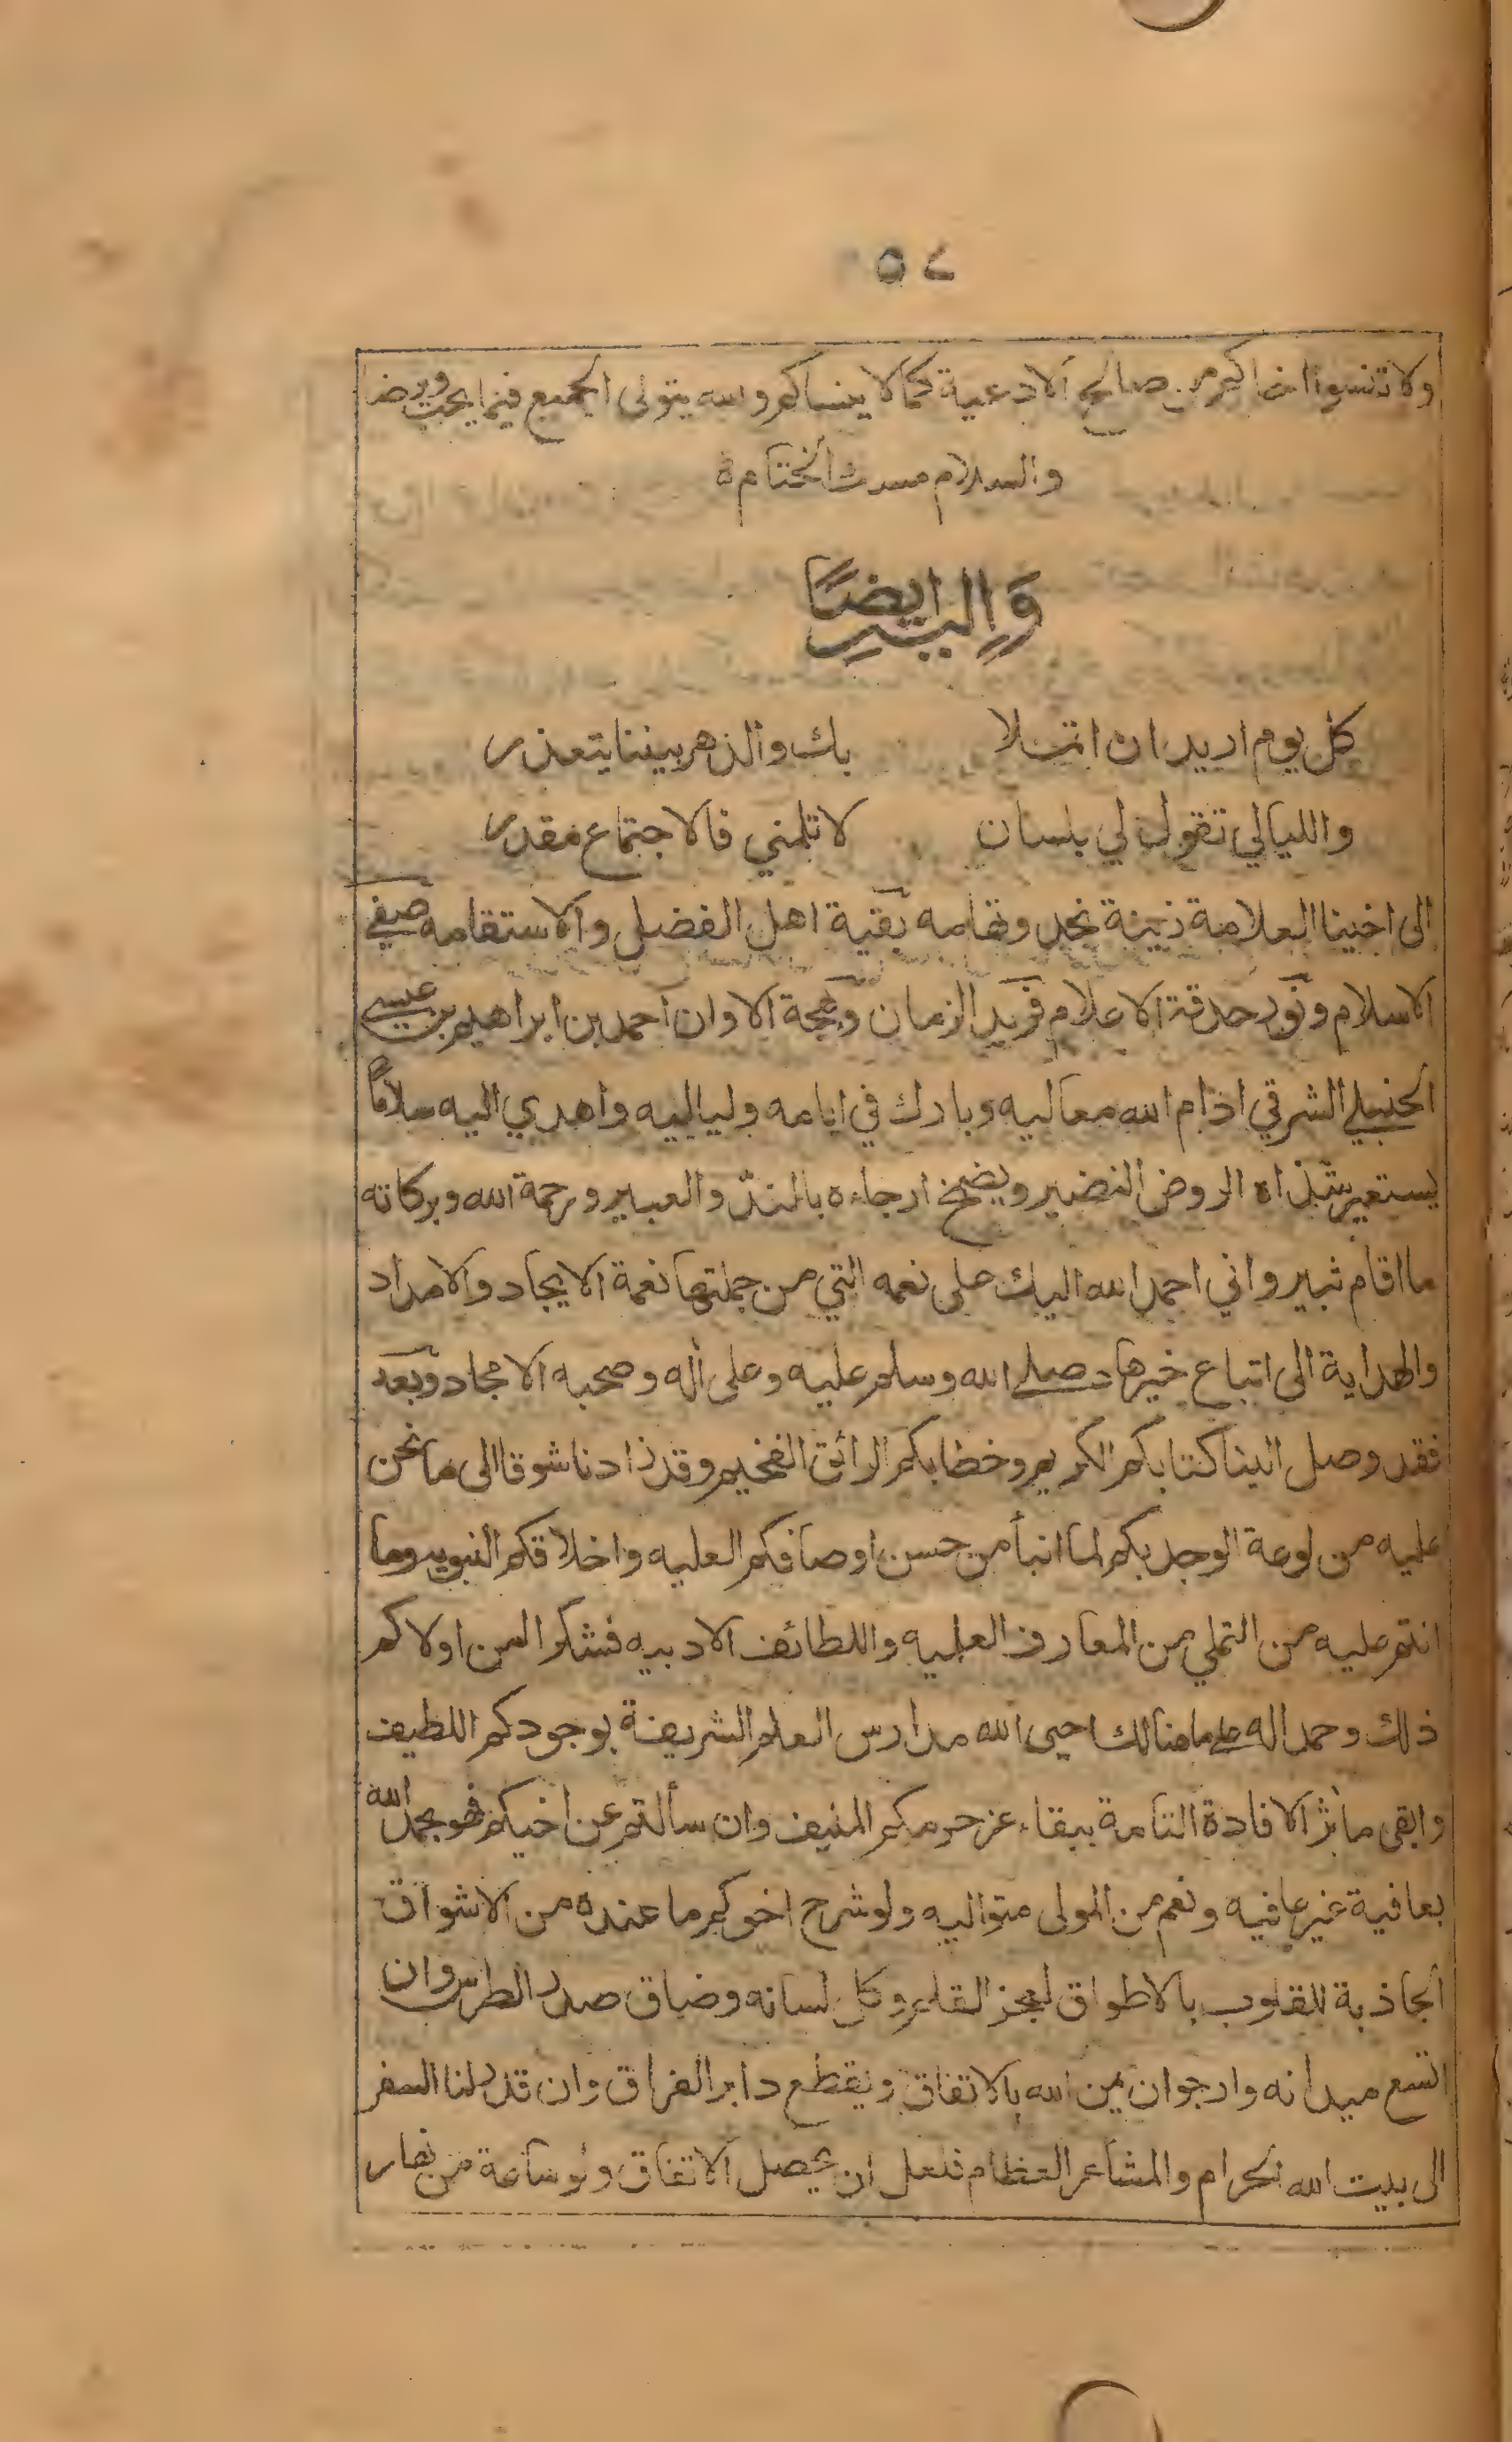 ٥٧
ولا تنسوا اخاكم من صالح الادعية كما لا ينساكم والله يتولى الجميع فيما يحب ويرضا
والسلام مسك الختام ة
وَاِليهِ ايضًا
كل يوم اريد ان اتملا بك والدهر بيننا يتعذر
والليالي تقول لي بلسان لا تلمني فالاجتماع مقدر
الى اخينا العلامة زينة نجد وتهامه بقية اهل الفضل والاستقامه صفي
الاسلام ونور حدقة الاعلام فريد الزمان وبهجة الاوان احمد بن ابراهيم بن عيسى
الحنبلي الشرقي ادام الله معاليه وبارك في ايامه ولياليه واهدي اليه سلامًا
يستعير شذاه الروض النضير ويضمخ ارجاءه بالند والعبير ورحمة الله وبركاته
ما اقام ثبير واني احمد الله اليك على نعمه التي من جملتها نعمة الايجاد والامداد
والهداية الى اتباع خير هاد صلى الله وسلم عليه وعلى أله وصحبه الامجاد وبعد
فقد وصل الينا كتابكم الكريم وخطابكم الرائق الفخيم وقد زادنا شوقا الى ما نحن
عليه من لوعة الوجد بكم لما انبأ من حسن اوصافكم العليه واخلاقكم النبويه وما
انتم عليه من التملي من المعارف العلميه واللطائف الادبيه فشكرا لمن اولاكم
ذلك وحمدا له على ما هنالك احيى الله مدارس العلم الشريفة بوجودكم اللطيف
وابقى مأثر الافادة التامة ببقاء عز حرمكم المنيف وان سألتم عن اخيكم فهو بحمد الله
بعافية غير عافيه ونعم من المولى متواليه ولو شرح اخوكم ما عنده من الاشواق
الجاذبة للقلوب بالاطواق لعجز القلم وكل لسانه وضاق صدر الطرس وان
اتسع ميدانه وارجو ان يمن الله بالاتفاق ويقطع دابر الفراق وان قدر لنا السفر
الى بيت الله الحرام والمشاعر العظام فلعل ان يحصل الاتفاق ولو ساعة من نهار